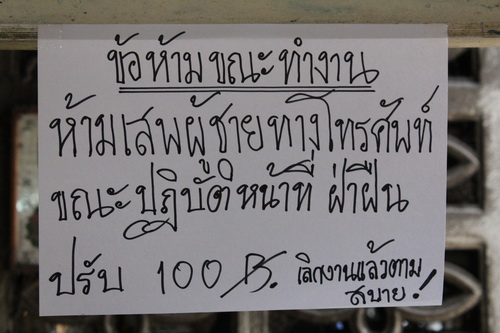 ข้อห้ามขณะทำงาน
ห้ามเสพผู้ชายทางโทรศัพท์
ขณะปฏิบัติหน้าที่ ฝ่าฝืน
ปรับ 100 B. เลิกงานแล้วตาม
สบาย!